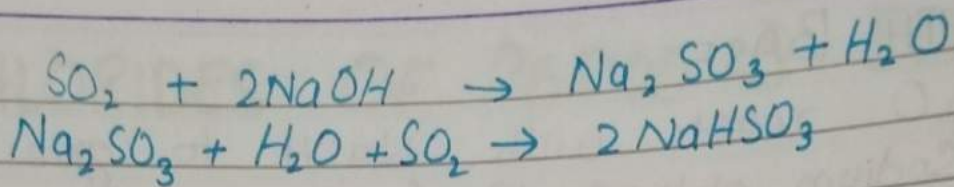 SO₂ + 2NaOH → Na₂SO₃ + H₂O
Na₂SO₃ + H₂O + SO₂ → 2NaHSO₃